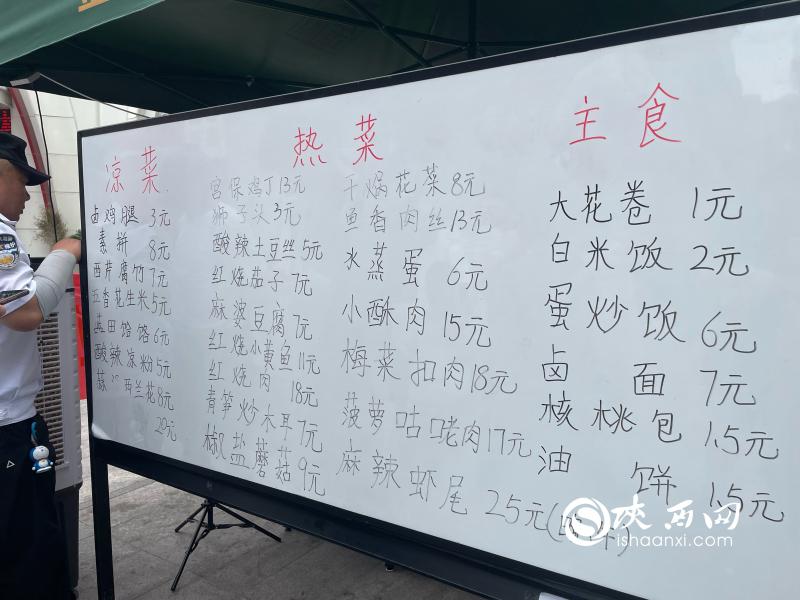 凉菜
卤鸡腿 3元
素拼 8元
西芹腐竹 7元
五香花生米 5元
蓝田饸饹 6元
酸辣凉粉 5元
西兰花 8元
20元
热菜
宫保鸡丁 13元
狮子头 3元
酸辣土豆丝 5元
红烧茄子 7元
麻婆豆腐 7元
红烧小黄鱼 11元
红烧肉 18元
青笋炒木耳 7元
椒盐蘑菇 9元
干煸花菜 8元
鱼香肉丝 13元
水蒸蛋 6元
小酥肉 15元
梅菜扣肉 18元
菠萝咕咾肉 17元
麻辣虾尾 25元
主食
大花卷 1元
白米饭 2元
蛋炒饭 6元
卤面 7元
核桃包 1.5元
油饼 1.5元
陕西网
ishaanxi.com